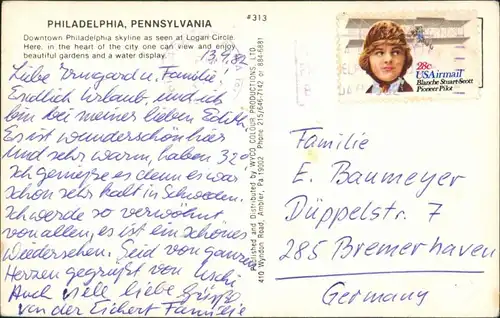 PHILADELPHIA, PENNSYLVANIA
#313
Downtown Philadelphia skyline as seen at Logan Circle.
Here, in the heart of the city one can view and enjoy
beautiful gardens and a water display.
13.9.82
Liebe Irmgard u. Familie,
Endlich Urlaub, und ich
bin bei meiner lieben Edith
Es ist wunderschön hier
und sehr warm, haben 32°
Ich genieße es denn es war
schon sehr kalt in Schweden.
Ich werde so verwöhnt
von allen, es ist ein schönes
Wiedersehen. Seid von ganzem
Herzen gegrüßt von Uschi.
Auch viele liebe Grüße
von der Eichert Familie
Published and Distributed by WYCO COLOUR PRODUCTIONS, LTD.
410 Wyndon Road, Ambler, Pa 19002 Phone 215/646-7142 or 884-6881
28c
USAirmail
Blanche Stuart Scott
Pioneer Pilot
Familie
E. Baumeyer
Düppelstr. 7
285 Bremerhaven
Germany